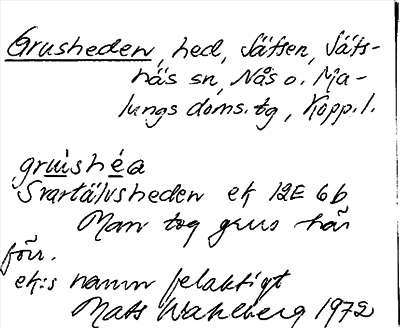 Grusheden, hed, Sätsen, Säfs-
näs sn, Nås o. Ma-
lungs doms. tg, Kopp. l.
gruishéa
Svartälvsheden ek 12E 6b
Man tog grus här
förr.
ek:s namn felaktigt
Mats Wahlberg 1972